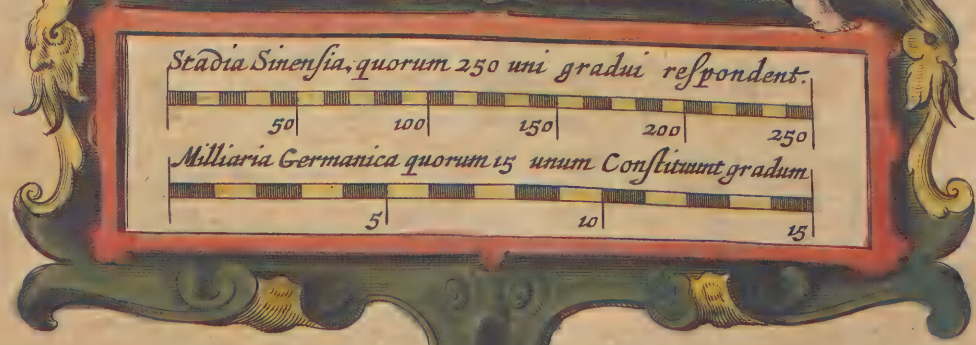 Stadia Sinensia, quorum 250 uni gradui respondent.
50 100 150 200 250
Milliaria Germanica quorum 15 unum Constituunt gradum
5 10 15